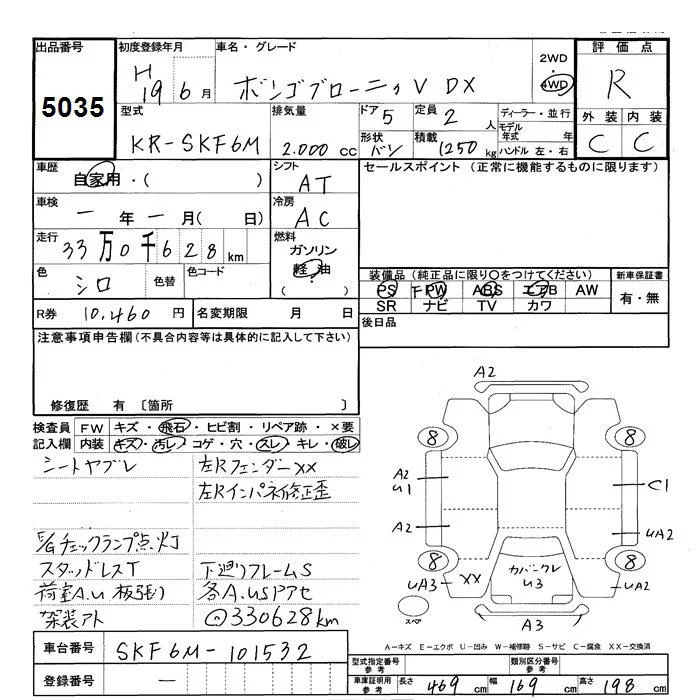 出品番号
5035
初度登録年月
H19 6月
車名・グレード
ボンゴブローニィV DX
2WD
4WD
評価点
R
外装 内装
C C
型式
KR-SKF6M
排気量
2.000 cc
ドア 5
形状 バン
定員 2 人
積載 1250 kg
ディーラー・並行
モデル年式 年
ハンドル 左・右
車歴
自家用・( )
シフト
AT
セールスポイント (正常に機能するものに限ります)
車検
一 年 一 月( 日)
冷房
AC
走行
33万0千628km
燃料
ガソリン
軽油
( )
色
シロ
色替
色コード
装備品 (純正品に限り○をつけてください)
PS PW ABS エアB AW
SR ナビ TV カワ
新車保証書
有・無
R券 10,460 円
名変期限 月 日
後日品
注意事項申告欄(不具合内容等は具体的に記入して下さい)
修復歴 有 〔箇所 〕
検査員記入欄
FW キズ・飛石・ヒビ割・リペア跡・×要
内装 キズ・汚レ・コゲ・穴・スレ・キレ・破レ
シートヤブレ
左Rフェンダーxx
左Rインパネ修正歪
E/Gチェックランプ点灯
スタッドレスT
下廻りフレームS
荷室A.U 板張り
各A.USアセ
架装アト
◎330628km
A2
8
8
A2
U1
C1
A2
UA2
8
8
UA3
XX
カバークレ
U3
UA2
スペア
A3
A-キズ E-エクボ U-凹み W-補修跡 S-サビ C-腐食 XX-交換済
車台番号
SKF6M-101532
登録番号
一
型式指定番号
参考
類別区分番号
参考
車庫証明用
参考
長さ 469 cm 幅 169 cm 高さ 198 cm